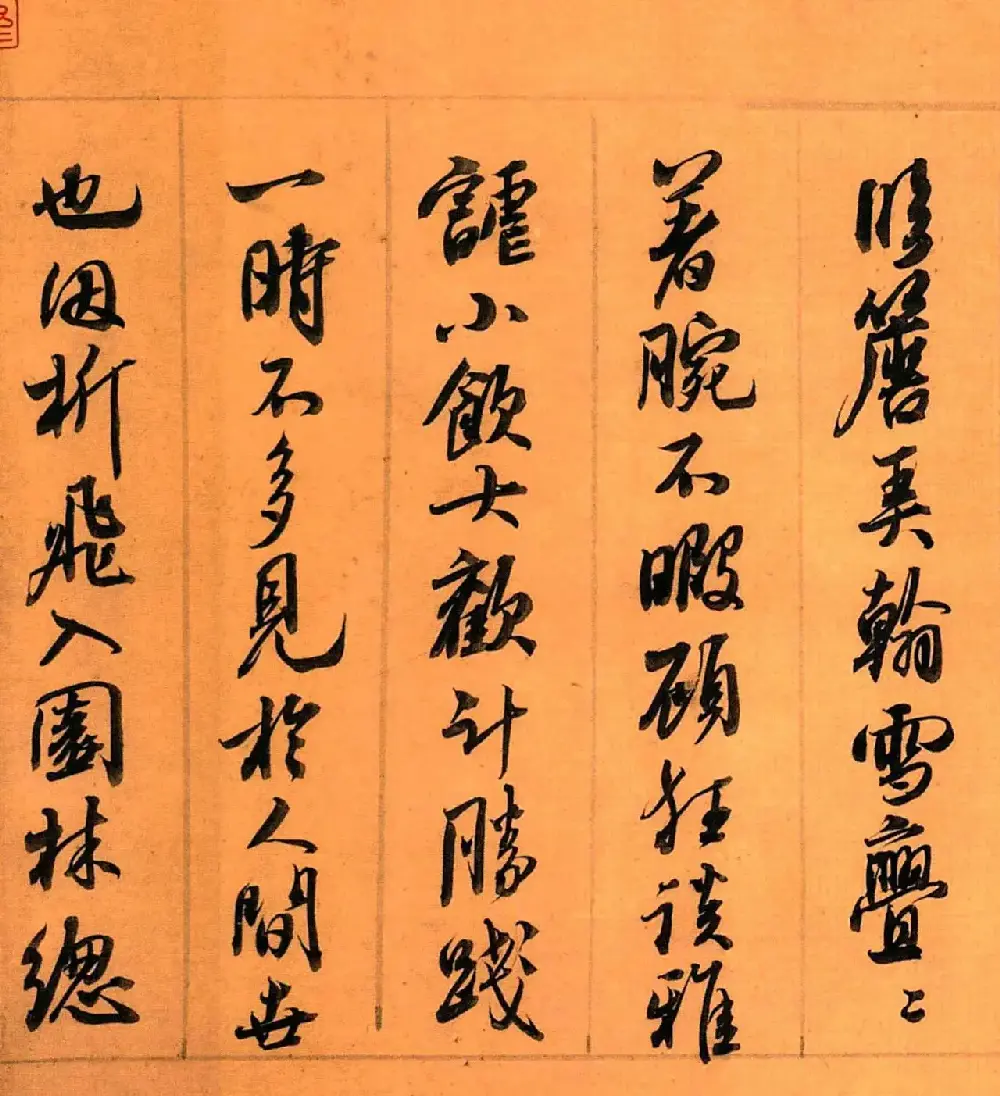 臨簷弄翰雪亹〻
著腕不暇顧狂談雅
謔小飲大歡計勝踐
一時不多見於人間世
也因析飛入園林總